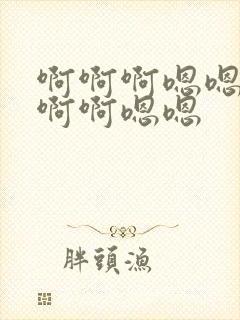 啊啊啊嗯嗯
啊啊嗯嗯
胖頭漁